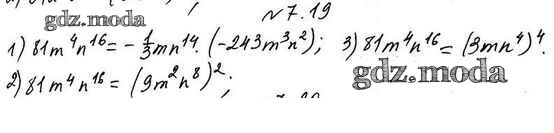 №7.19
gdz.moda
1) 81m⁴n¹⁶ = -1/3mn¹⁴·(-243m³n²); 3) 81m⁴n¹⁶ = (3mn⁴)⁴.
2) 81m⁴n¹⁶ = (9m²n⁸)²;
gdz.moda